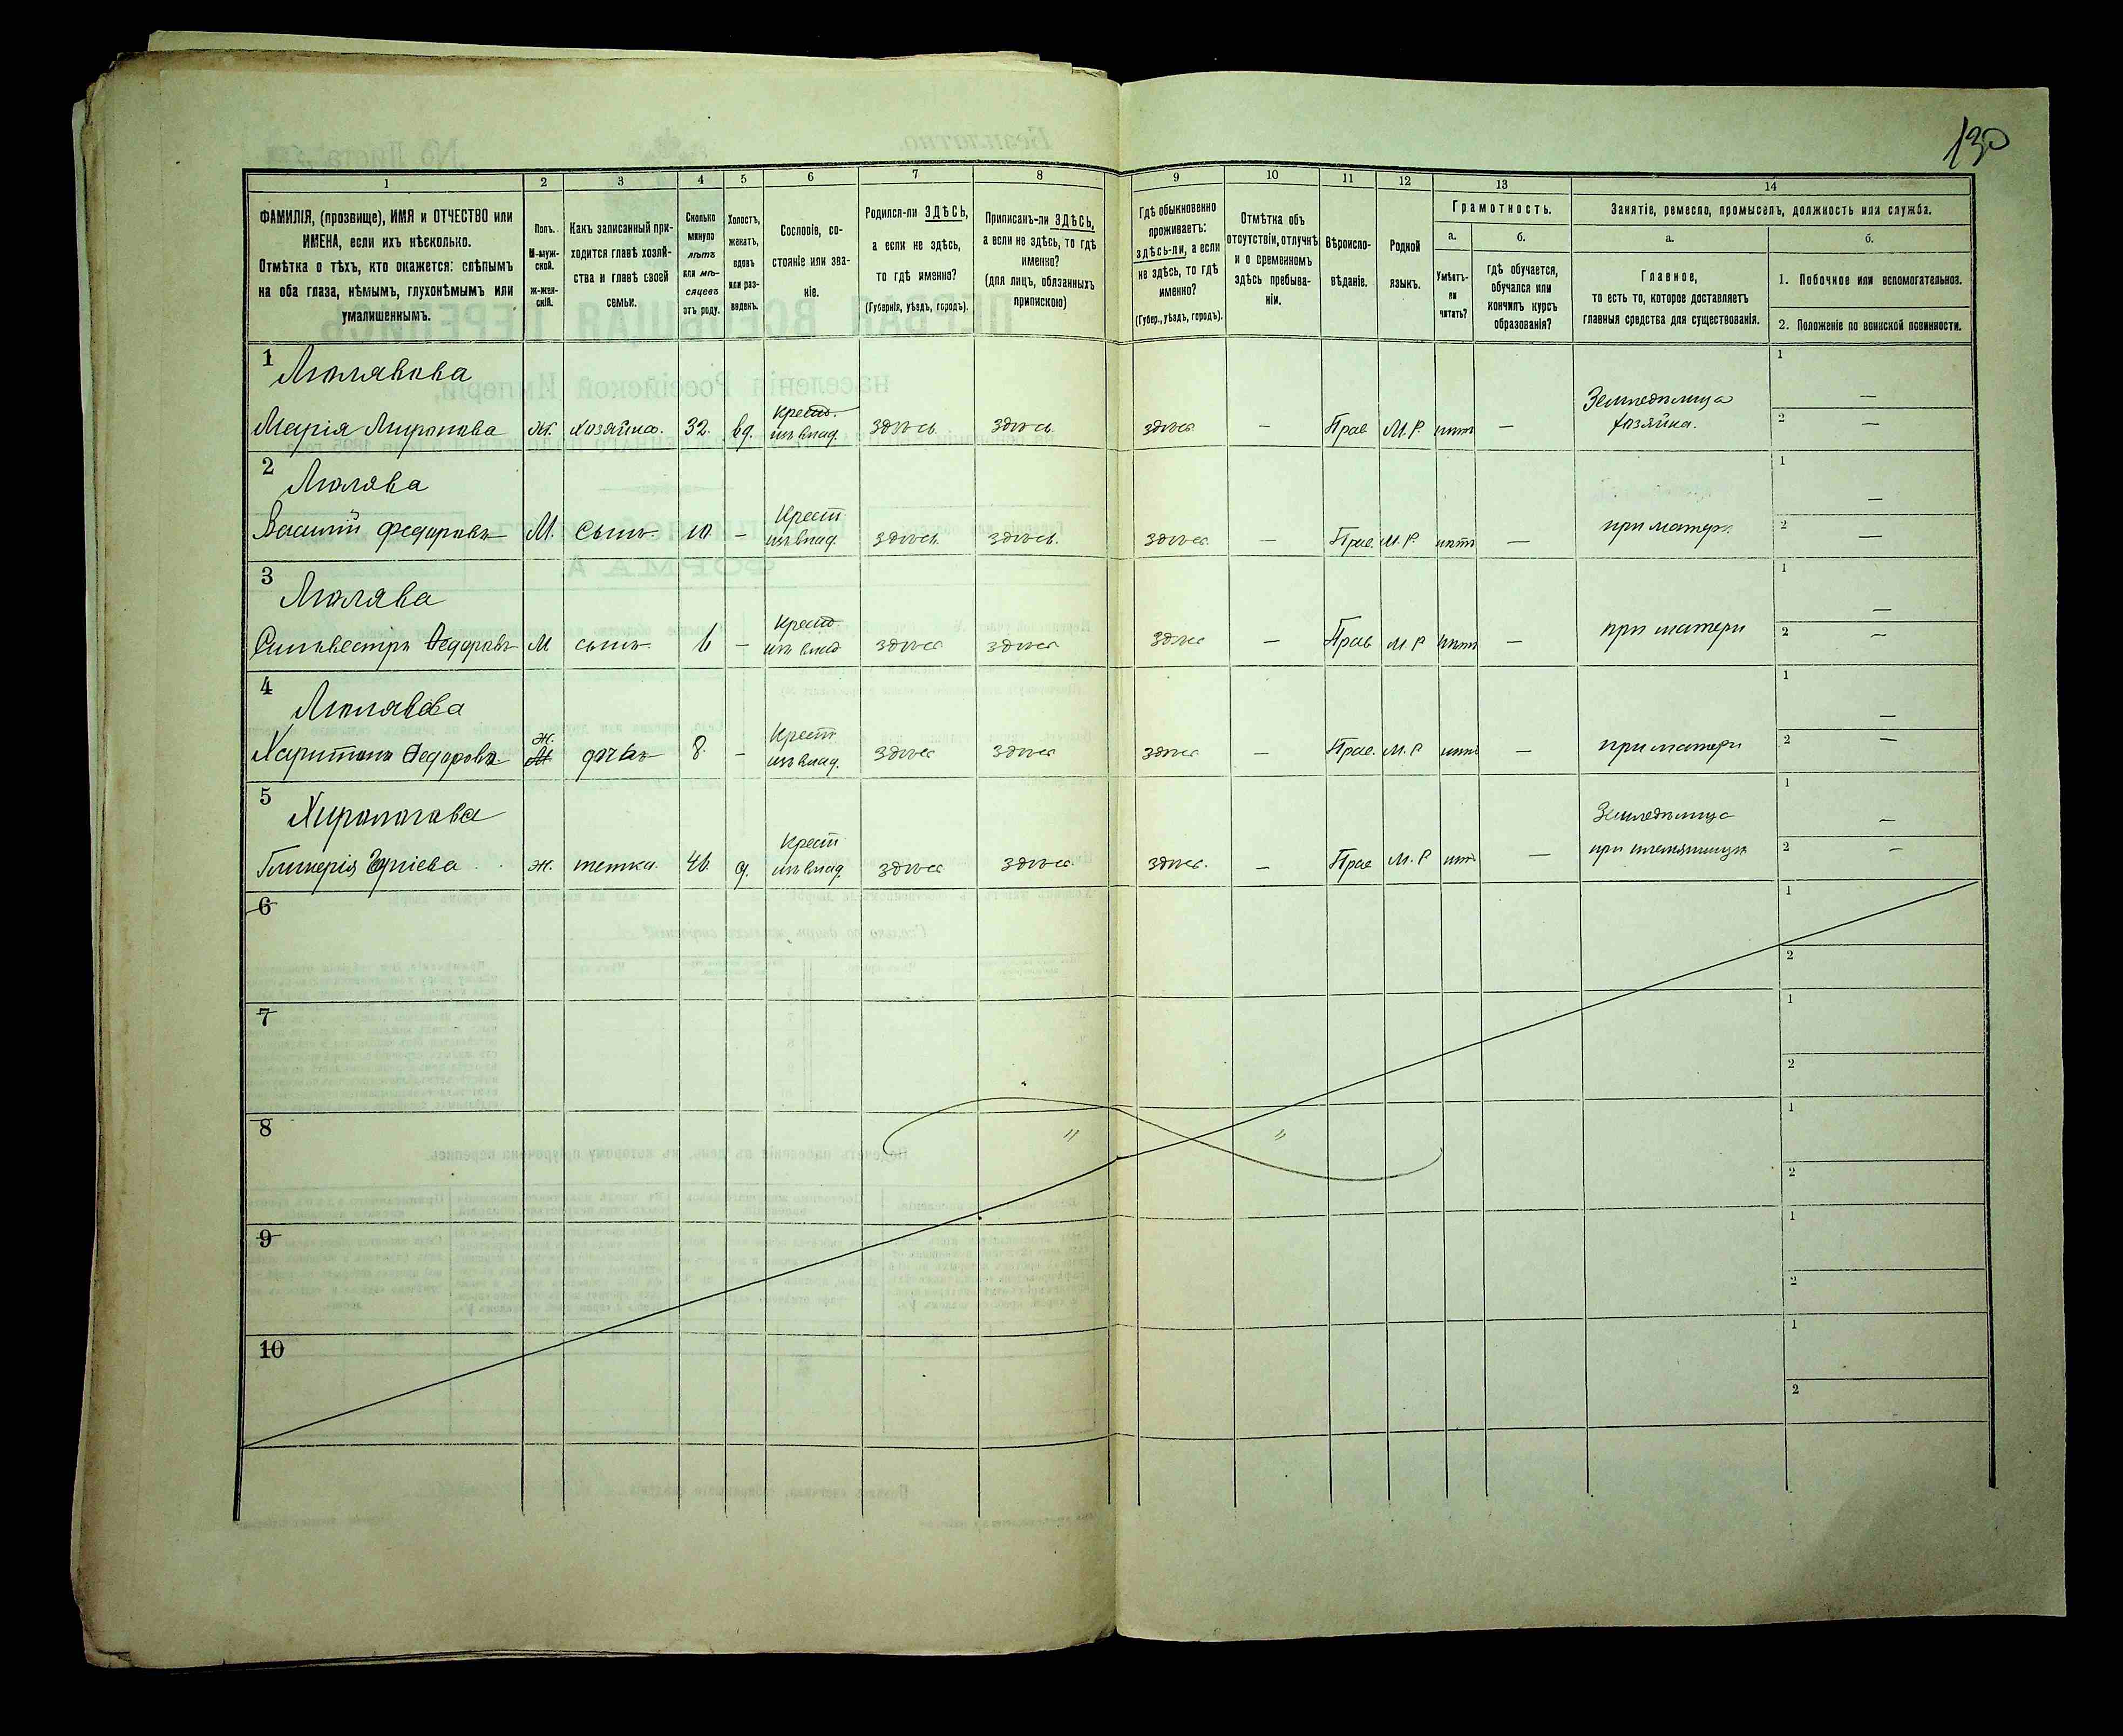 130
1 2 3 4 5 6 7 8 9 10 11 12 13 14
ФАМИЛІЯ, (прозвище), ИМЯ и ОТЧЕСТВО или
ИМЕНА, если ихъ нѣсколько.
Отмѣтка о тѣхъ, кто окажется: слѣпымъ
на оба глаза, нѣмымъ, глухонѣмымъ или
умалишеннымъ.
Полъ.
М-муж-
ской.
Ж-жен-
скій.
Какъ записанный при-
ходится главѣ хозяй-
ства и главѣ своей
семьи.
Сколько
минуло
лѣтъ
или мѣ-
сяцевъ
отъ роду.
Холостъ,
женатъ,
вдовъ
или раз-
веденъ.
Сословіе, со-
стояніе или зва-
ніе.
Родился-ли ЗДѢСЬ,
а если не здѣсь,
то гдѣ именно?
(Губернія, уѣздъ, городъ).
Приписанъ-ли ЗДѢСЬ,
а если не здѣсь, то гдѣ
именно?
(для лицъ, обязанныхъ
припискою)
Гдѣ обыкновенно
проживаетъ:
здѣсь-ли, а если
не здѣсь, то гдѣ
именно?
(Губер., уѣздъ, городъ).
Отмѣтка объ
отсутствіи, отлучкѣ
и о временномъ
здѣсь пребыва-
ніи.
Вѣроиспо-
вѣданіе.
Родной
языкъ.
Грамотность.
а.
Умѣетъ-
ли
читать?
б.
гдѣ обучается,
обучался или
кончилъ курсъ
образованія?
Занятіе, ремесло, промыселъ, должность или служба.
а.
Главное,
то есть то, которое доставляетъ
главныя средства для существованія.
б.
1. Побочное или вспомогательное.
2. Положеніе по воинской повинности.
1
Марія Миронова Ж. хозяйка. 32. вд. Крест. изъ влад. здѣсь здѣсь здѣсь — Прав М.Р. нѣтъ — Земледѣлица хозяйка. 1 — 2 —
2
Василій Федоровъ М. Сынъ. 10 — Крест изъ влад. здѣсь. здѣсь. здѣсь — Прав. М.Р. нѣтъ — при матери 1 — 2 —
3
Сильвестръ Федоровъ М сынъ. — Крест. изъ влад здѣсь здѣсь здѣсь — Прав М Р нѣтъ — при матери 1 — 2 —
4
Федорова ж. дочь 8. — Крест изъ влад. здѣсь здѣсь здѣсь — Прав. М.Р нѣтъ — при матери 1 — 2 —
5
Гликерія ж. тетка. д. Крест изъ влад. здѣсь здѣсь. здѣсь. — Прав М.Р нѣтъ — Земледѣлица при племянницѣ 1 — 2 —
6 1 2
7 1 2
8 " " 1 2
9 1 2
10 1 2